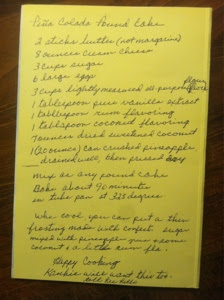 Piña Colada Pound Cake
2 sticks butter (not margarine)
8 ounces cream cheese
3 cups sugar
6 large eggs
3 cups lightly measured all-purpose flour
1 tablespoon pure vanilla extract
1 tablespoon rum flavoring
1 tablespoon coconut flavoring
7 ounces dried sweetened coconut
1 (20 ounce) can crushed pineapple
drained well, then pressed dry
mix as any pound cake
Bake about 90 minutes
in tube pan at 325 degrees
When cool you can put a thin
frosting made with confect. sugar
mixed with pineapple juice & some
coconut & a little rum fla.
Happy Cooking
will want this too.